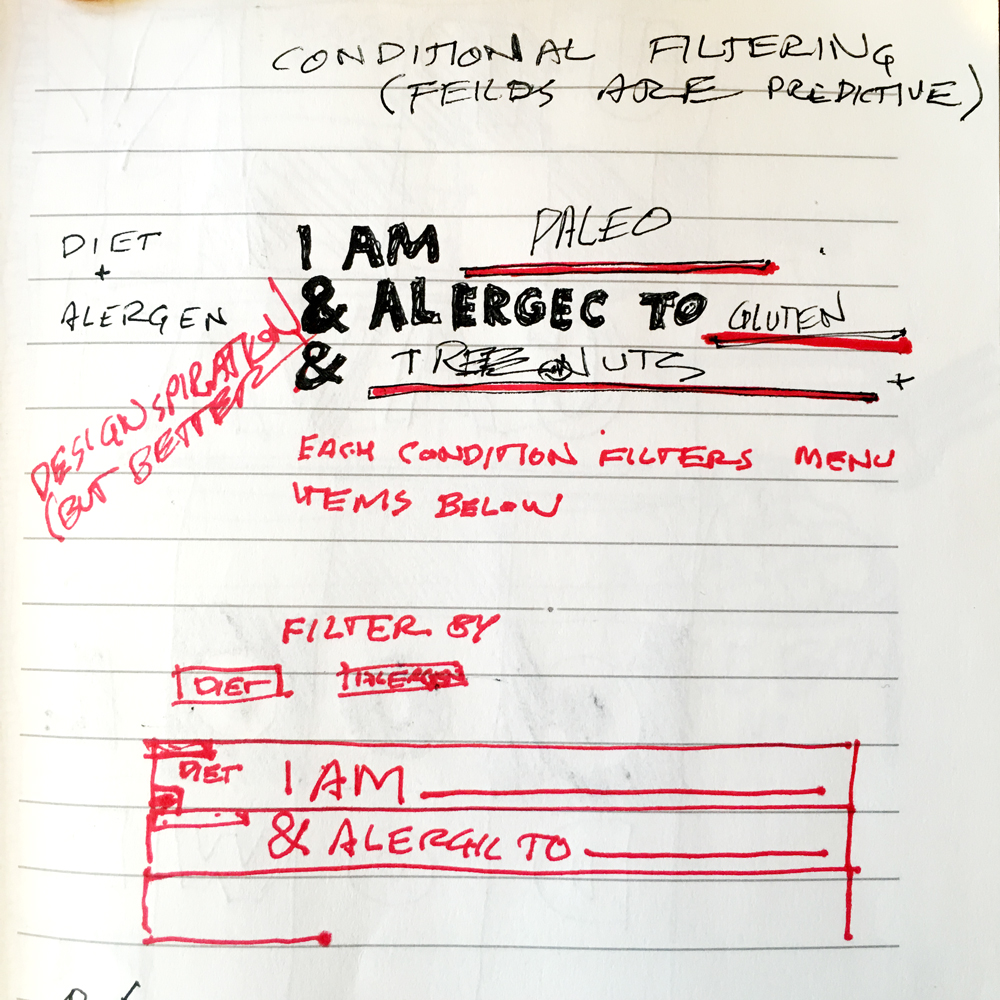 CONDITIONAL FILTERING
(FEILDS ARE PREDICTIVE)
DIET
+
ALERGEN
I AM PALEO
& ALERGEC TO GLUTEN
& TREE NUTS +
DESIGNSPIRATION
(BUT BETTER
EACH CONDITION FILTERS MENU
ITEMS BELOW
FILTER BY
DIET ALERGEN
DIET I AM
& ALERGIC TO